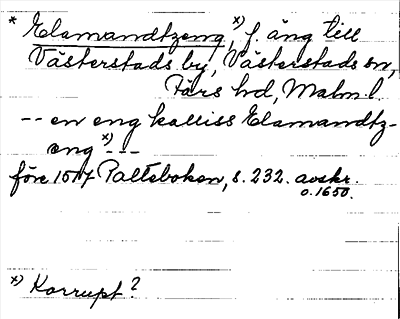 * Elamandtzeng, x) f. äng till
Västerstads by, Västerstads sn,
Färs hd, Malm. l.
-- en eng kalliss Elamandtz-
æng x) ---
före 1517 Palteboken, s. 232. avskr.
o. 1650.
x) Korrupt?